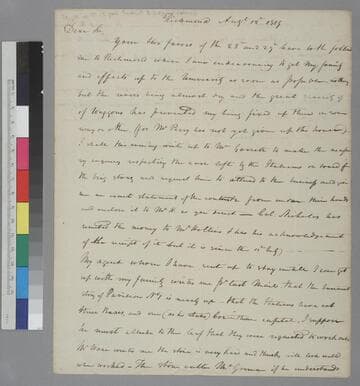 Richmond Augt. 12th. 1819
Dear Sir
Your two favors of the 25 and 29 have both follow
me to Richmond where I am endeavouring to get my family
and effects up to the University as soon as possible nothing
but the waters being almost dry and the great scarcity of
of Waggons has prevented my being fixed up there in some
way or other (for Mr Perry has not yet given up the house)
I shall this evening write up to Mr Garrett to make the necessary
enquiry respecting the ware left by the Italians or
the big stone and request him to attend to the business and give
me an exact statement of the contents from under their hands
and enclose it to Mr H. as you direct — Col. Nicholas has
remitted the money to Mr Hollins & has his acknowledgement
of the receipt of it but it is since the
My agent whom I have sent up to stay untill I can get
up with my family writes me pr last Mails that the basement
story of Pavilion No is nearly up — that the Italians have cut
three bases, and one (as he states) Corinthian capitel, I suppose
he must allude to the leaf that they were requested to work out
Mr Ware writes me the stone is very hard and thinks will look well
when worked — The stone cutter Mr Gorman if he understands